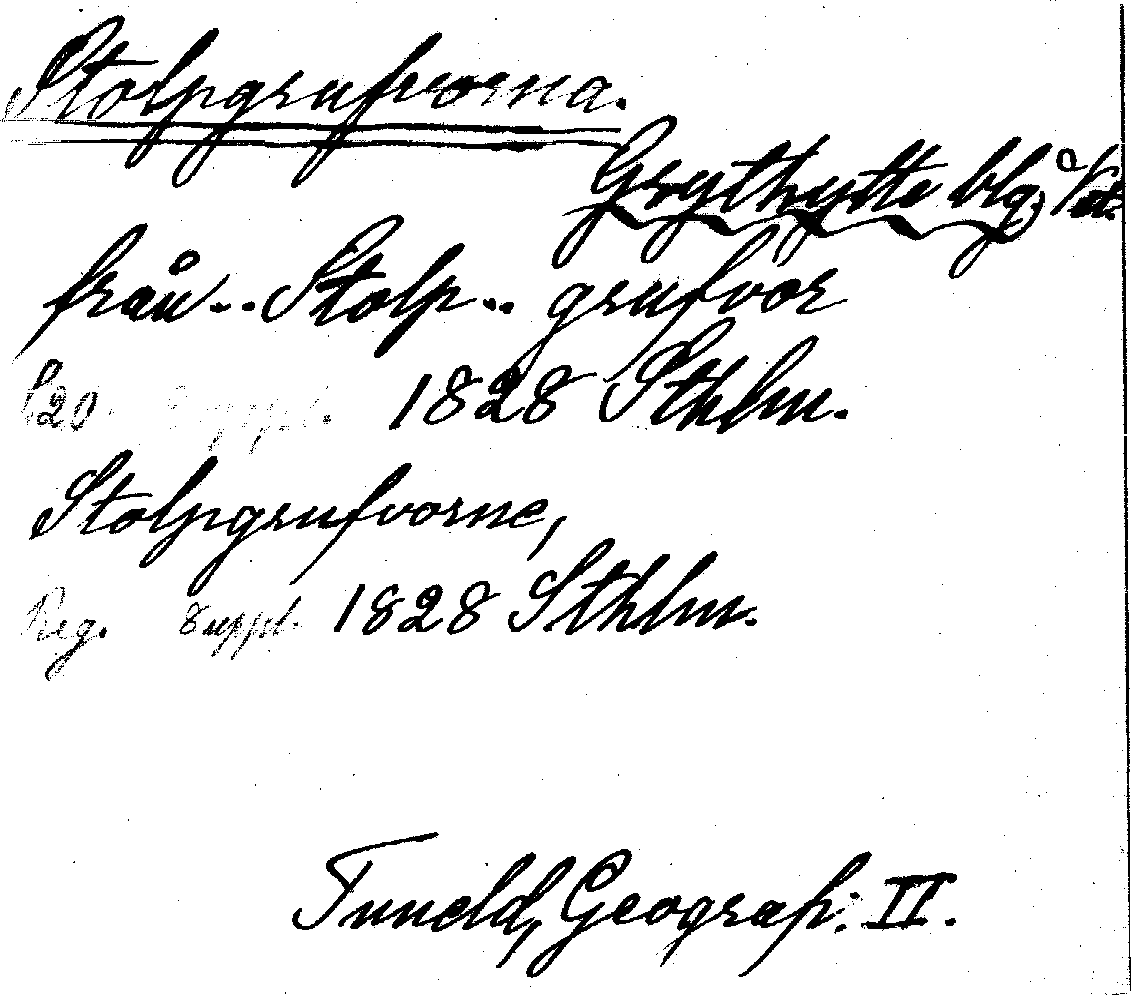 Stolpgrufvorna.
Grythytte blg. Vstm.
från.. Stolp.. grufvor
S20 Suppl. 1828 Sthlm.
Stolpgrufvorne,
Reg. Suppl. 1828 Sthlm.
Tuneld, Geograf. II.